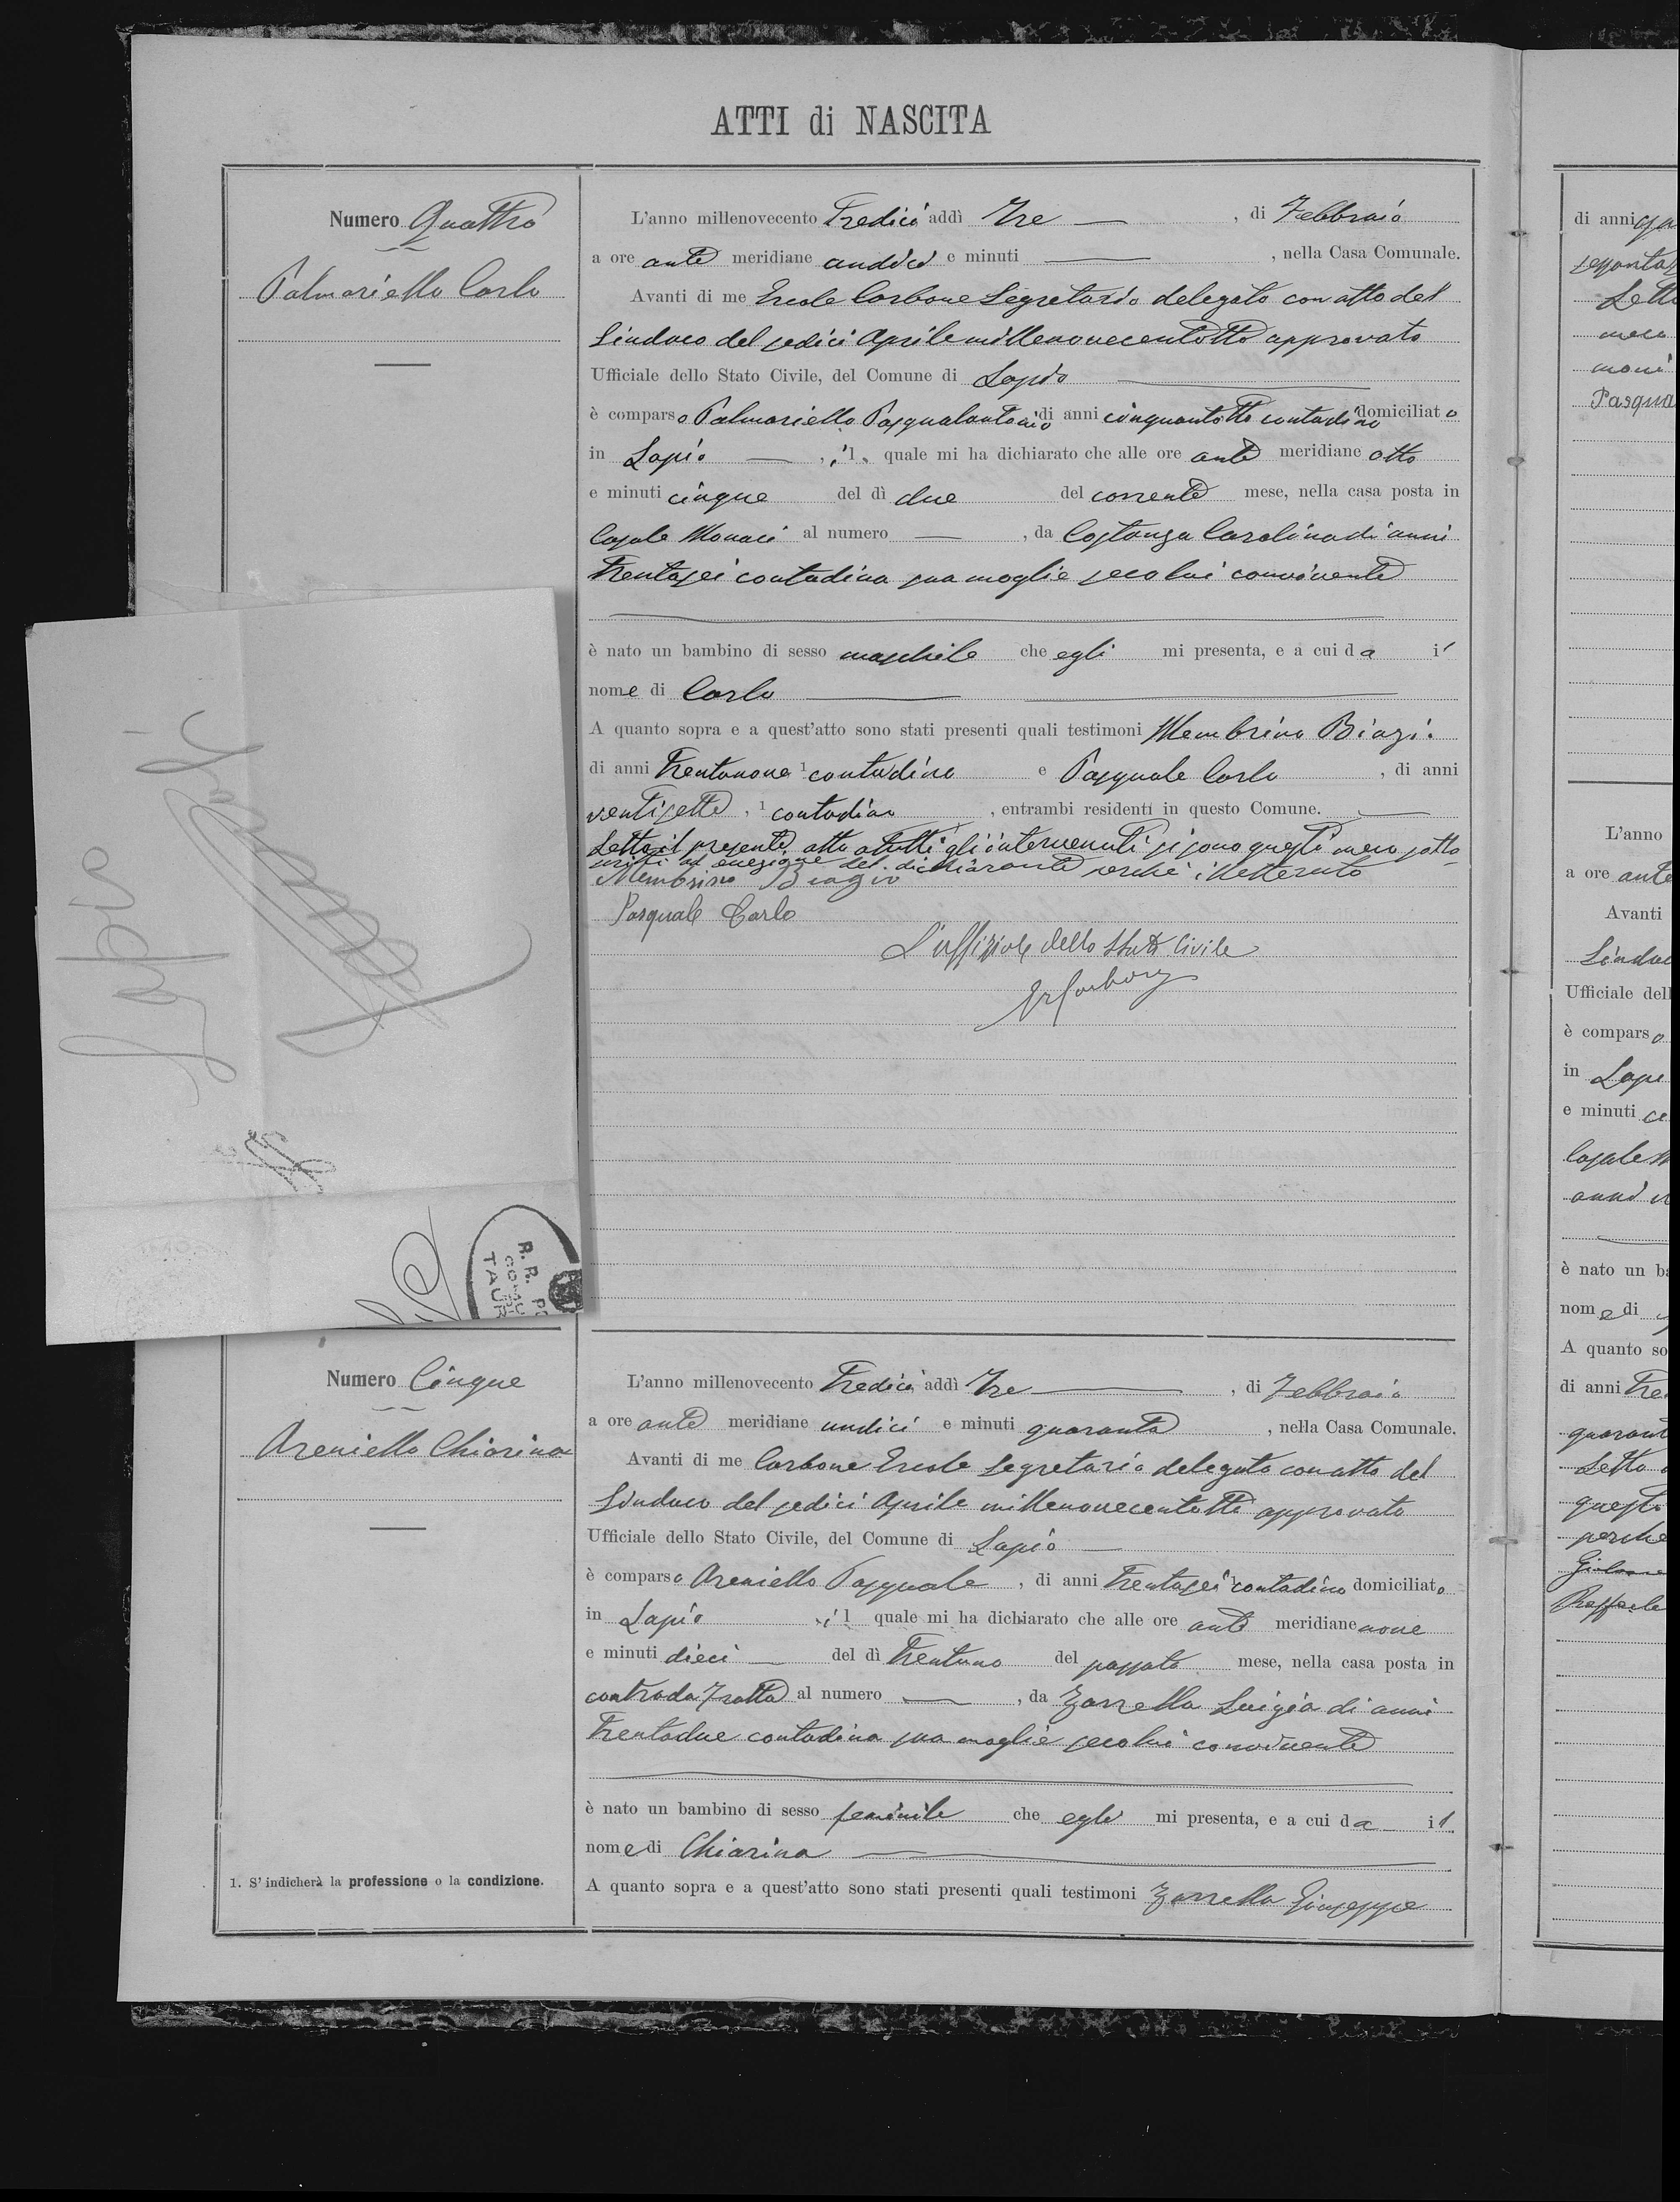 ATTI di NASCITA
Numero Quattro
Palmariello Carlo
L'anno millenovecento Tredici addì Tre — , di Febbraio
a ore ante meridiane undici e minuti — , nella Casa Comunale.
Avanti di me Ercole Carbone Segretario delegato con atto del
Sindaco del sedici Aprile millenovecentotto approvato
Ufficiale dello Stato Civile, del Comune di Lapio
è comparso Palmariello Pasqualantonio di anni cinquantotto contadino domiciliato
in Lapio — , il quale mi ha dichiarato che alle ore ante meridiane otto
e minuti cinque del dì due del corrente mese, nella casa posta in
Casale Monaci al numero — , da Costanza Carolina di anni
trentasei contadina sua moglie seco lui convivente
è nato un bambino di sesso maschile che egli mi presenta, e a cui da il
nome di Carlo
A quanto sopra e a quest'atto sono stati presenti quali testimoni Membrino Biagio
di anni trentanove 1 contadino e Pasquale Carlo , di anni
ventisette , 1 contadino , entrambi residenti in questo Comune. —
Letto il presente atto a tutti gli intervenuti si sono questi meco sotto
scritti ad eccezione del dichiarante perché illetterato
Membrino Biagio
Pasquale Carlo
L'uffiziale dello Stato Civile
Lapio
R. R. PO
COMU
DI
TAUR
Numero Cinque
Areniello Chiarina
L'anno millenovecento Tredici addì Tre — , di Febbraio
a ore ante meridiane undici e minuti quaranta , nella Casa Comunale.
Avanti di me Carbone Ercole Segretario delegato con atto del
Sindaco del sedici Aprile millenovecentotto approvato
Ufficiale dello Stato Civile, del Comune di Lapio —
è comparso Areniello Pasquale , di anni trentasei 1 contadino domiciliato
in Lapio il quale mi ha dichiarato che alle ore ante meridiane nove
e minuti dieci — del dì trentuno del passato mese, nella casa posta in
contrada Fratta al numero — , da Zarrella Luigia di anni
trentadue contadina sua moglie seco lui convivente
è nato un bambino di sesso feminile che egli mi presenta, e a cui da il
nome di Chiarina —
A quanto sopra e a quest'atto sono stati presenti quali testimoni Zarrella Giuseppe
1. S' indicherà la professione o la condizione.
di anni
Letto
meco
Pasqua
L'anno
a ore ante
Avanti
Sindac
Ufficiale dell
è comparso
in Lapi
e minuti
Casale M
anni
è nato un ba
nome di
A quanto so
di anni Tre
quarant
Letto
questi
perché
Raffaele